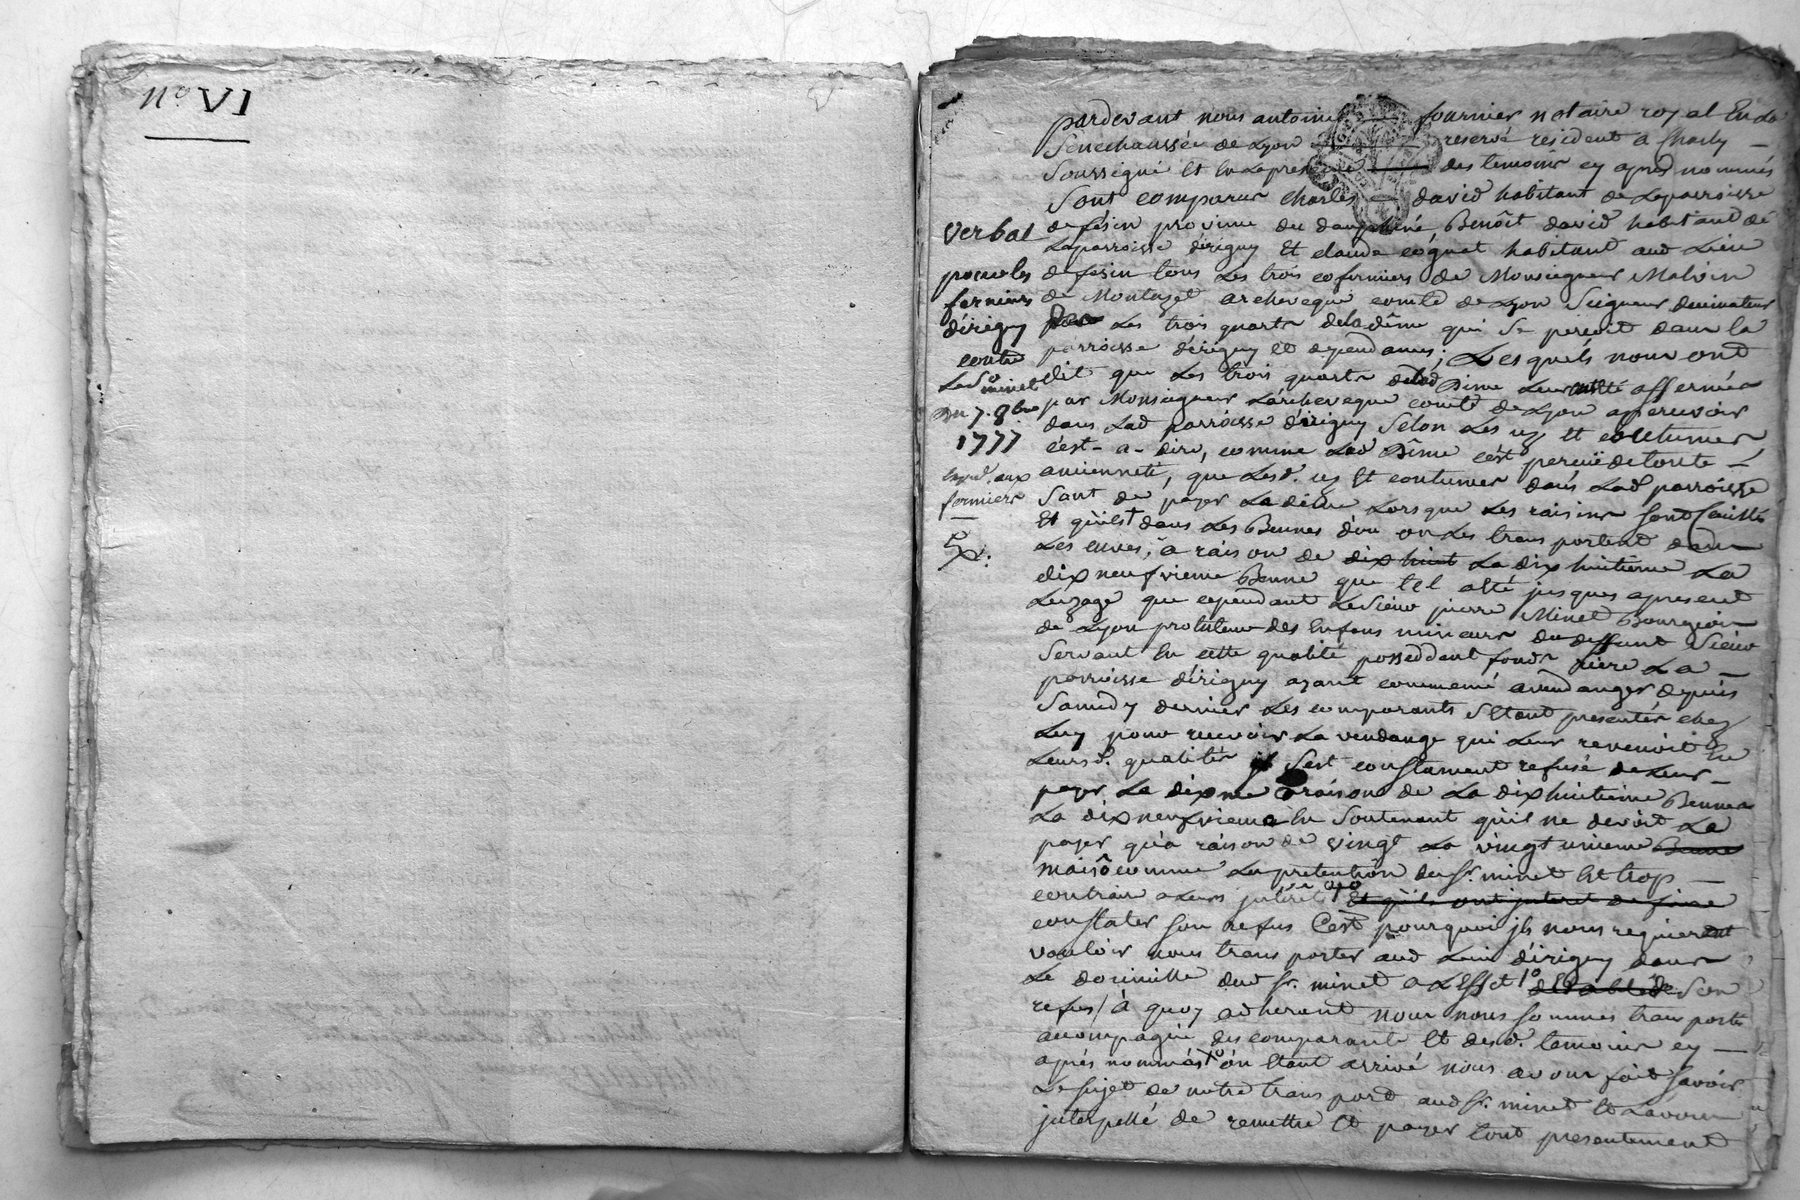 nº VI
verbal
pour les
fermiers
d'érigny
contre
Le Sr minet
Du 7. 8bre
1777
expd. aux
fermiers
pardevant nous antoine fournier notaire royal En La
Senechaussée de Lyon reservé résident a Charly
Soussigné Et En La presence des temoins cy aprés nommés
Sont comparus Charles david habitant de La parroisse
de Lesin province du dauphiné, Benoît david habitant de
La parroisse d'érigny Et claude cognet habitant aud Lieu
de Lesin tous Les trois cofermiers de Monseigneur Malvin
de Montazet archeveque comte de Lyon Seigneur decimateur
Les trois quarts de la dîme qui Se perçoit dans la
parroisse d'érigny et dependances; Lesquels nous ont
dit que Les trois quarts de lad Dime Leur été affermée
par Monseigneur L'archeveque comte de Lyon a percevoir
dans Lad parroisse d'érigny Selon Les us et coutumes
c'est-a-dire, comme Lad Dîme c'est perçuë de toute
ancienneté, que Lesd. us Et coutumes dans Lad parroisse
Sont de payer La dîme Lorsque Les raisins Sont Cuillis
Et qu'ils dans Les Bennes d'ou on Les transportent dans
Les cuves; a raison de dix huit La dix huitieme La
dix neufvieme Benne que tel a été jusques apresent
L'uzage que cependant Le Sieur pierre Minet Bourgeois
de Lyon protuteur des Enfans mineurs du deffunt Sieur
Servant En cette qualité posseddant fonds riere La
parroisse d'érigny ayant commencé a vendanger depuis
Samedy dernier Les comparants S'étant presentés chez
Luy pour recevoir La vendange qui Leur revenoit En
Leursd. qualités il S'est constament refusé de Leur
payer La dixme a raison de La dix huitieme Benne a
La dix neufvieme En Soutenant qu'il ne devoit La
payer qu'à raison de vingt La vingt unieme Benne
mais comme La pretention du Sr. minet Est trop
contraire a Leurs interêt Et qu'ils ont interet de faire
constater Son refus C'est pourquoi ils nous requierent
vouloir nous transporter aud Lieu d'érigny dans
Le domicille dud Sr. minet a L'Effet 1º Son
refus / à quoy adherant nous nous sommes transportés
accompagné des comparants Et desd. temoins cy
aprés nommés 1º ou Etant arrivé nous avons fait Savoir
Le Sujet de notre transport aud Sr. minet Et L'avons
interpellé de remettre Et payer tout presentement